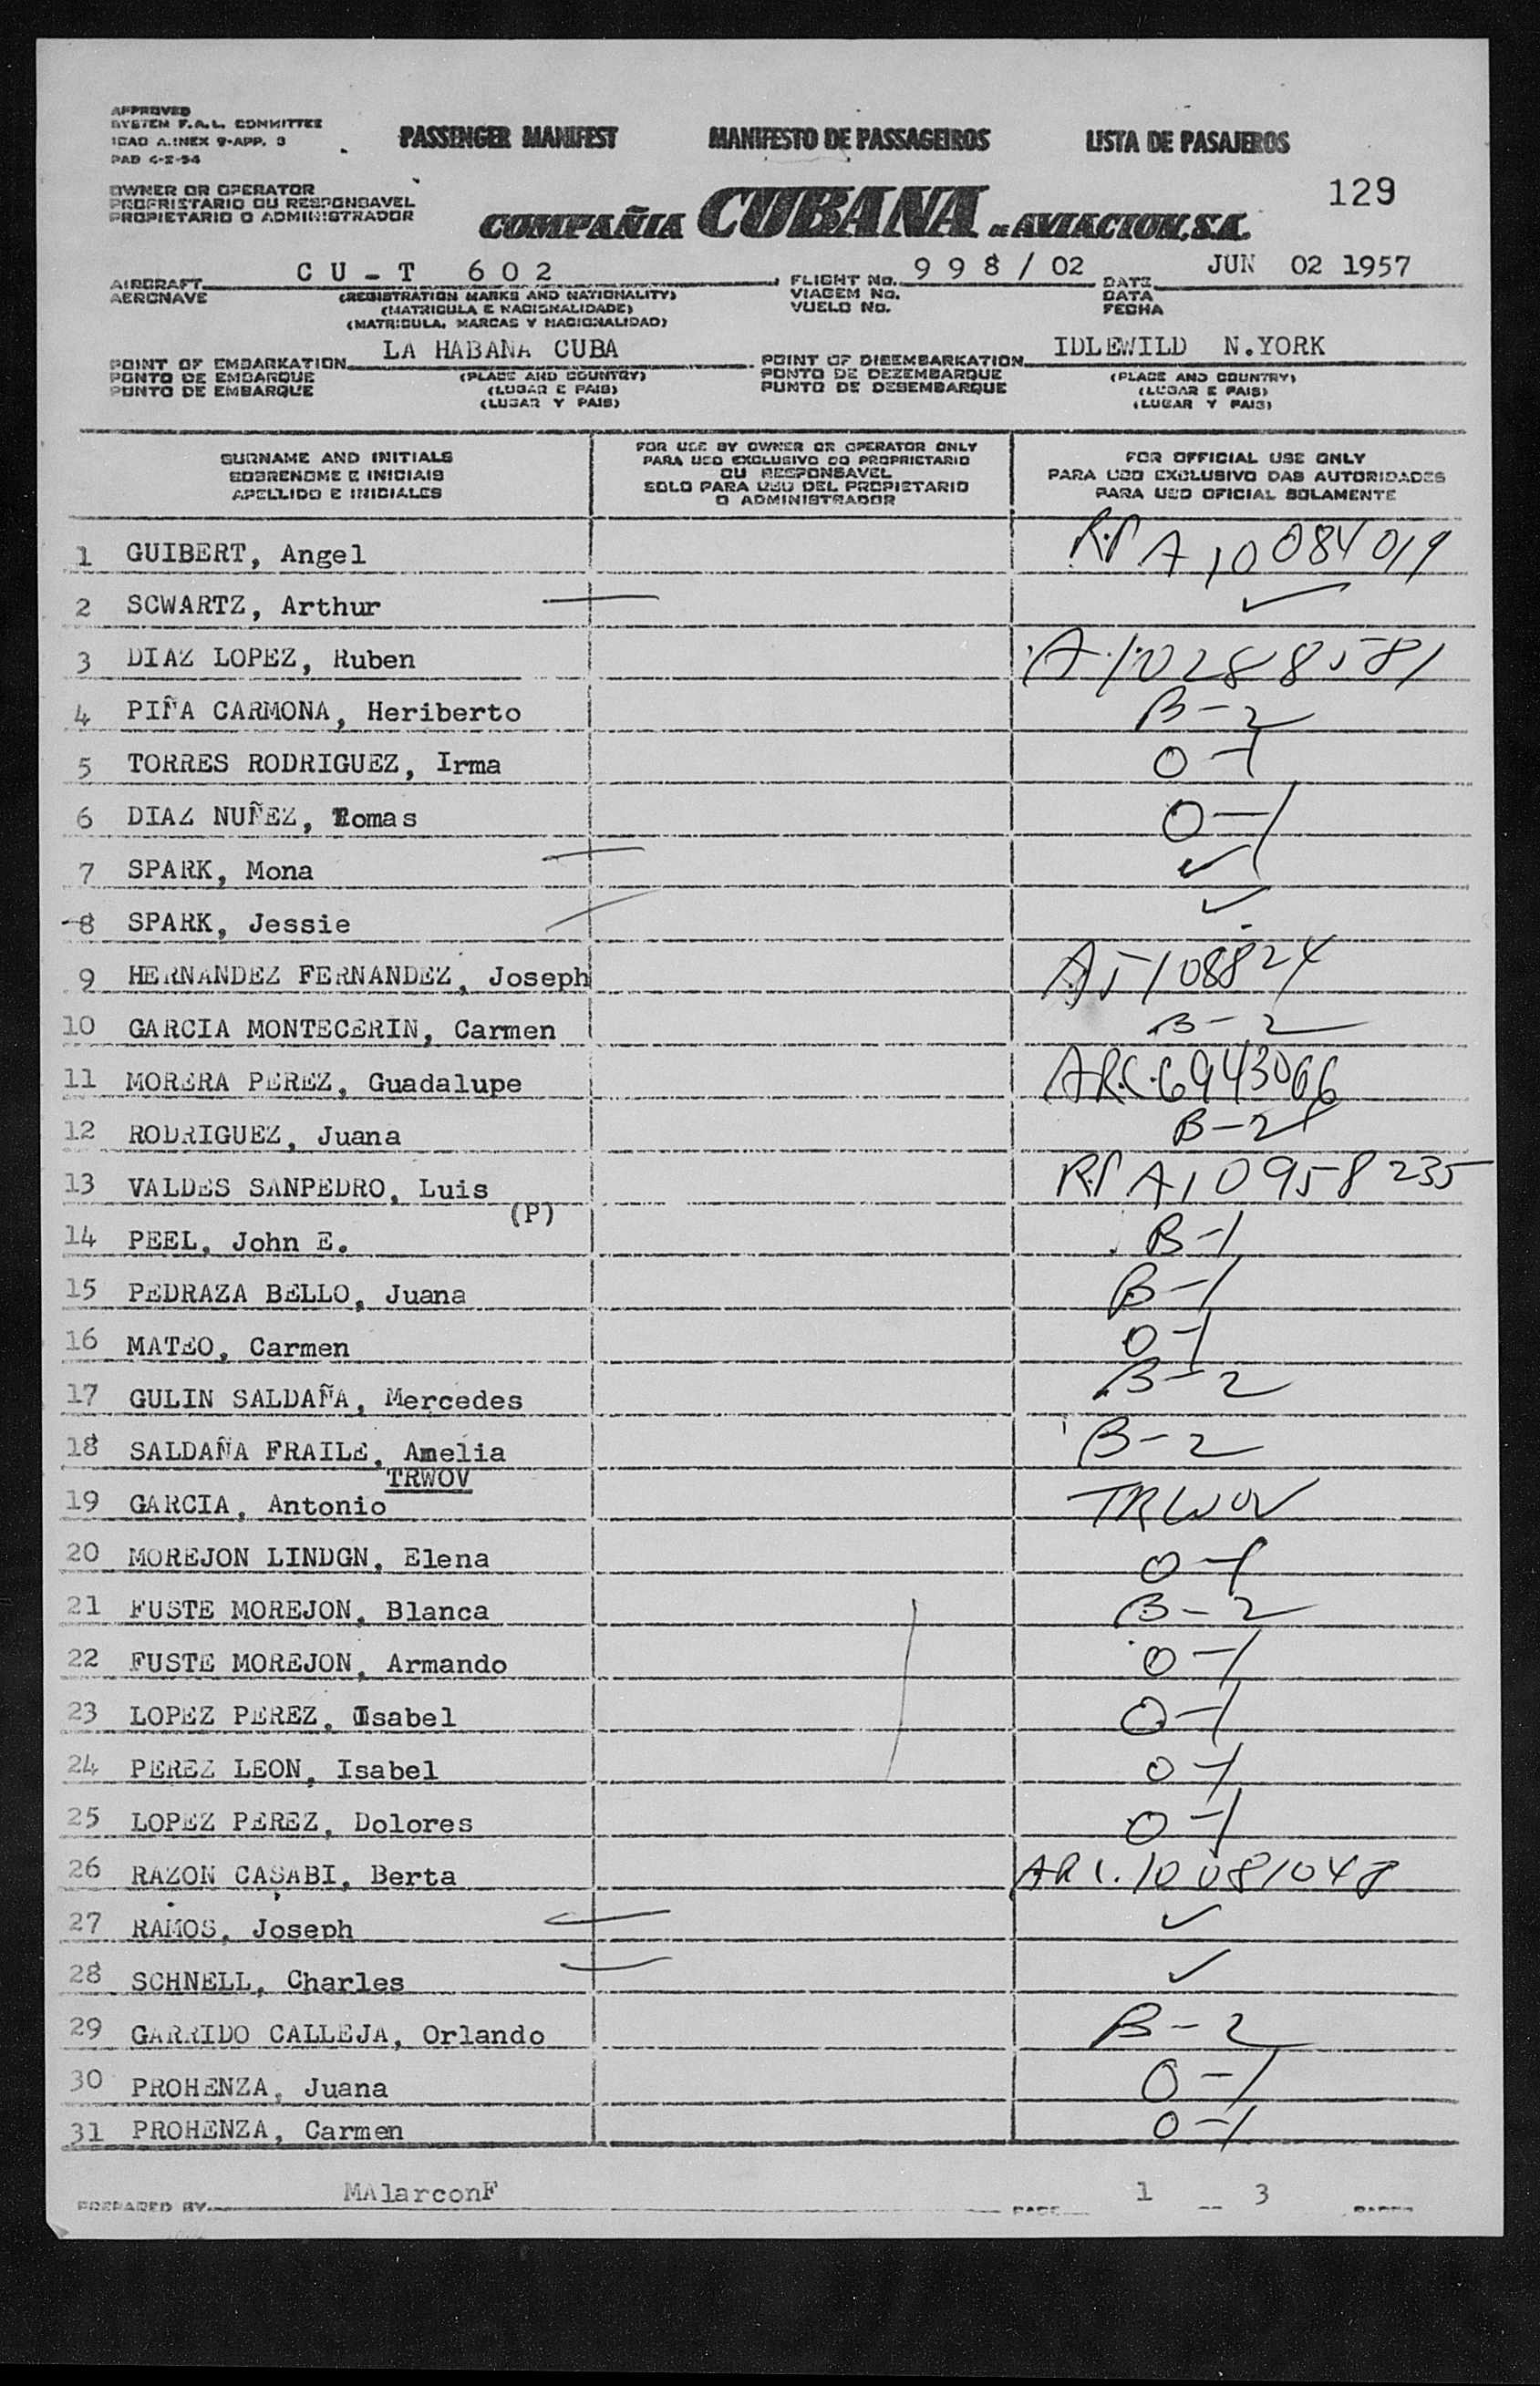 APPROVED
SYSTEM F.A.L. COMMITTEE
ICAO ANNEX 9-APP. 3
PAD 4-2-54
PASSENGER MANIFEST MANIFESTO DE PASSAGEIROS LISTA DE PASAJEROS
129
OWNER OR OPERATOR
PROPRIETARIO OU RESPONSAVEL
PROPIETARIO O ADMINISTRADOR
COMPAÑIA CUBANA DE AVIACION, S.A.
AIRCRAFT CU-T 602 FLIGHT No. 998/02 DATE JUN 02 1957
AERONAVE (REGISTRATION MARKS AND NATIONALITY) VIAGEM No. DATA
(MATRICULA E NACIONALIDADE) VUELO No. FECHA
(MATRICULA, MARCAS Y NACIONALIDAD)
POINT OF EMBARKATION LA HABANA CUBA POINT OF DISEMBARKATION IDLEWILD N.YORK
PONTO DE EMBARQUE (PLACE AND COUNTRY) PONTO DE DEZEMBARQUE (PLACE AND COUNTRY)
PUNTO DE EMBARQUE (LUGAR E PAIS) PUNTO DE DESEMBARQUE (LUGAR E PAIS)
(LUGAR Y PAIS) (LUGAR Y PAIS)
SURNAME AND INITIALS
SOBRENOME E INICIAIS
APELLIDO E INICIALES
FOR USE BY OWNER OR OPERATOR ONLY
PARA USO EXCLUSIVO DO PROPRIETARIO
OU RESPONSAVEL
SOLO PARA USO DEL PROPIETARIO
O ADMINISTRADOR
FOR OFFICIAL USE ONLY
PARA USO EXCLUSIVO DAS AUTORIDADES
PARA USO OFICIAL SOLAMENTE
1 GUIBERT, Angel R.P A10084019
2 SCWARTZ, Arthur ✓
3 DIAZ LOPEZ, Ruben A10288581
4 PIÑA CARMONA, Heriberto B-2
5 TORRES RODRIGUEZ, Irma O-1
6 DIAZ NUÑEZ, Tomas O-1
7 SPARK, Mona ✓
8 SPARK, Jessie ✓
9 HERNANDEZ FERNANDEZ, Joseph A5108824
10 GARCIA MONTECERIN, Carmen B-2
11 MORERA PEREZ, Guadalupe ARC.6943066
12 RODRIGUEZ, Juana B-2
13 VALDES SANPEDRO, Luis R.P A10958235
(P)
14 PEEL, John E. B-1
15 PEDRAZA BELLO, Juana B-1
16 MATEO, Carmen O-1
17 GULIN SALDAÑA, Mercedes B-2
18 SALDAÑA FRAILE, Amelia B-2
TRWOV
19 GARCIA, Antonio TRWOV
20 MOREJON LINDGN, Elena O-1
21 FUSTE MOREJON, Blanca B-2
22 FUSTE MOREJON, Armando O-1
23 LOPEZ PEREZ, Isabel O-1
24 PEREZ LEON, Isabel O-1
25 LOPEZ PEREZ, Dolores O-1
26 RAZON CASABI, Berta ARC.10081048
27 RAMOS, Joseph ✓
28 SCHNELL, Charles ✓
29 GARRIDO CALLEJA, Orlando B-2
30 PROHENZA, Juana O-1
31 PROHENZA, Carmen O-1
PREPARED BY MAlarconF PAGE 1 3